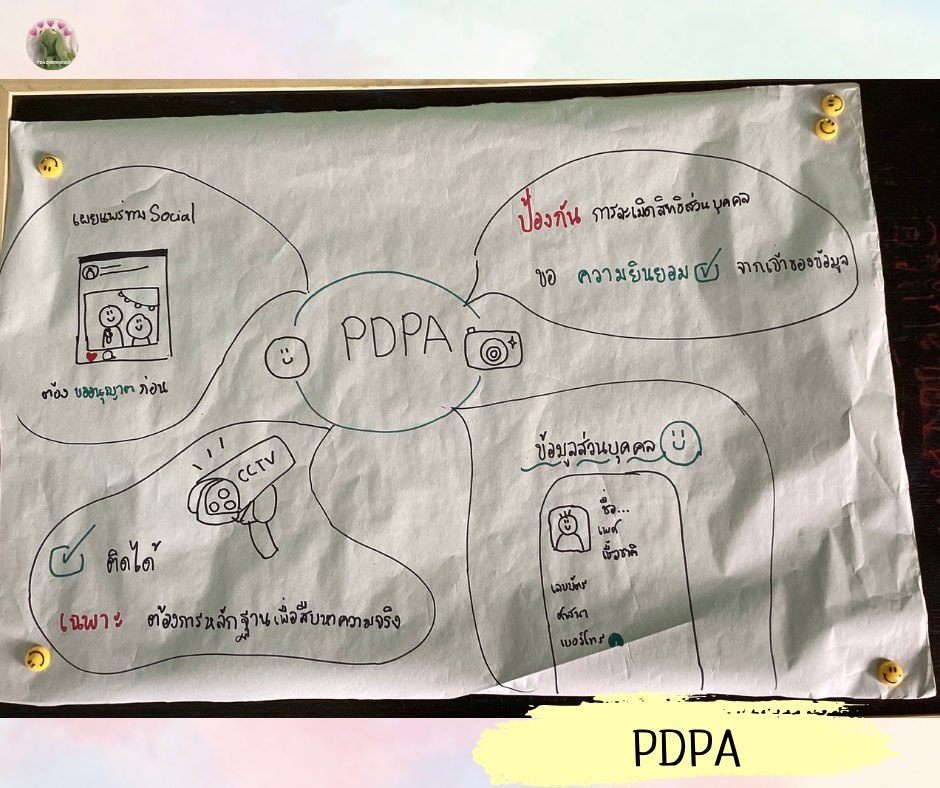 TEACHERHOOD
เผยแพร่ทาง Social
ต้อง ขออนุญาต ก่อน
PDPA
ป้องกัน การละเมิดสิทธิส่วนบุคคล
ขอ ความยินยอม จากเจ้าของข้อมูล
CCTV
ติดได้
เฉพาะ ต้องการหลักฐานเพื่อสืบหาความจริง
ข้อมูลส่วนบุคคล
ชื่อ...
เพศ
เชื้อชาติ
เลขบัตร
ศาสนา
เบอร์โทร
PDPA